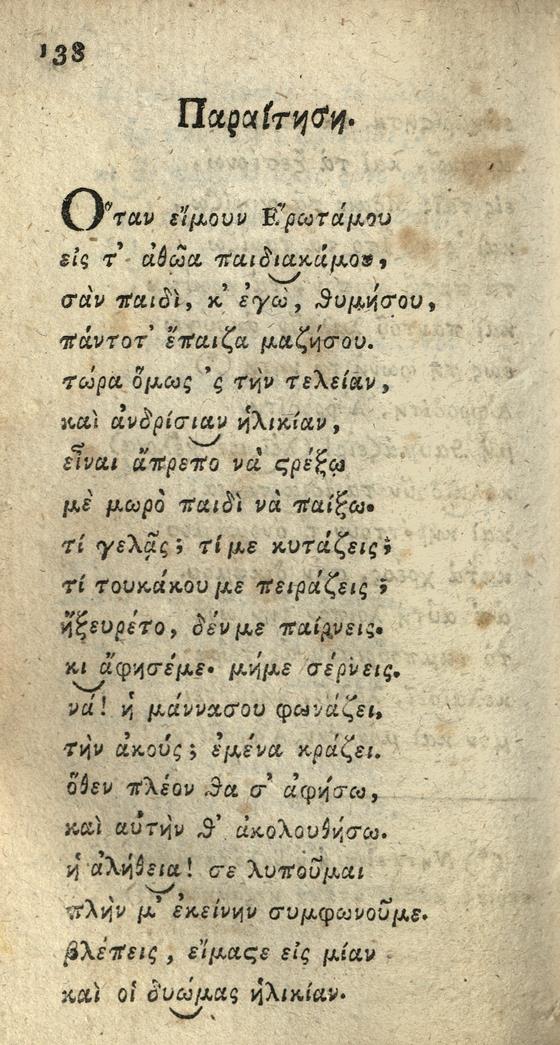 138
Παραίτηση.
Ὅταν εἴμουν Ἔρωτάμου
εἰς τ' ἀθῶα παιδιακάμου,
σὰν παιδὶ, κ' ἐγὼ, θυμήσου,
πάντοτ' ἔπαιζα μαζήσου.
τώρα ὅμως 'ς τὴν τελείαν,
καὶ ἀνδρίσιαν ἡλικίαν,
εἶναι ἄπρεπο νὰ ϛρέξω
μὲ μωρὸ παιδὶ νὰ παίξω.
τί γελᾷς; τίμε κυτάζεις;
τί τουκάκουμε πειράζεις;
ἤξευρέτο, δένμε παίρνεις.
κι ἄφησέμε· μήμε σέρνεις.
νά! ἡ μάννασου φωνάζει,
τὴν ἀκούς; ἐμένα κράζει.
ὅθεν πλέον θα σ' ἀφήσω,
καὶ αὐτὴν θ' ἀκολουθήσω.
ἡ ἀλήθεια! σε λυποῦμαι
πλὴν μ' ἐκείνην συμφωνοῦμε.
βλέπεις, εἴμαϛε εἰς μίαν
καὶ οἱ δυώμας ἡλικίαν.